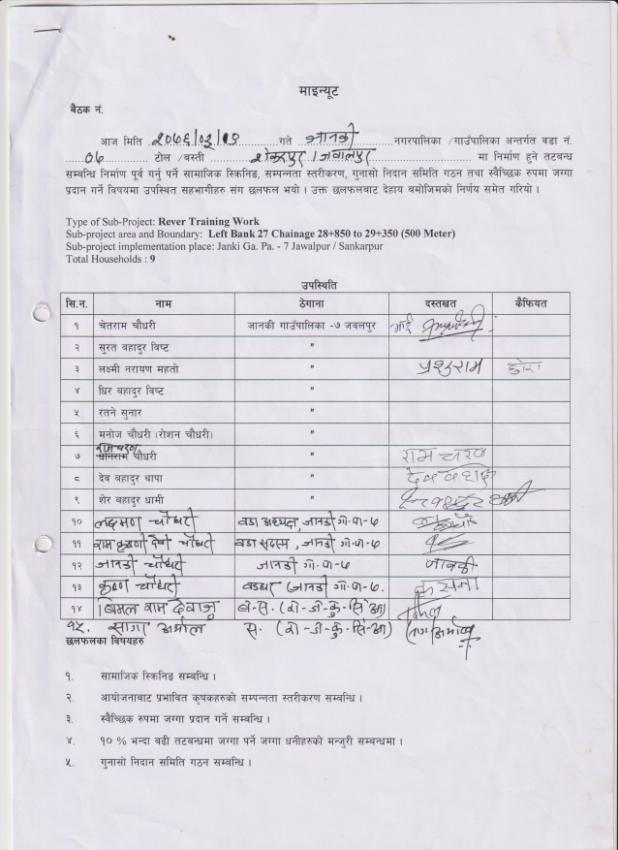 माइन्यूट
बैठक नं.
आज मिति २०७६/०३/१९ गते जानकी नगरपालिका /गाउँपालिका अन्तर्गत वडा नं.
०७ टोल /बस्ती शंकरपुर / जवालपुर मा निर्माण हुने तटबन्ध
सम्बन्धि निर्माण पूर्व गर्नु पर्ने सामाजिक स्किनिङ, सम्पन्नता स्तरीकरण, गुनासो निदान समिति गठन तथा स्वैच्छिक रुपमा जग्गा
प्रदान गर्ने विषयमा उपस्थित सहभागीहरु संग छलफल भयो । उक्त छलफलबाट देहाय बमोजिमको निर्णय समेत गरियो ।
Type of Sub-Project: Rever Training Work
Sub-project area and Boundary: Left Bank 27 Chainage 28+850 to 29+350 (500 Meter)
Sub-project implementation place: Janki Ga. Pa. - 7 Jawalpur / Sankarpur
Total Households : 9
उपस्थिति
सि.न. नाम ठेगाना दस्तखत कैफियत
१ चेतराम चौधरी जानकी गाउँपालिका -७ जवलपुर भाई
२ सुरत बहादुर विष्ट "
३ लक्ष्मी नारायण महतो " प्रशुराम छोरा
४ धिर बहादुर विष्ट "
५ रतने सुनार "
६ मनोज चौधरी (रोशन चौधरी) "
७ रामचरण चौधरी " राम चरण
८ देव बहादुर थापा " देव बहादु
९ शेर बहादुर धामी "
१० लक्ष्मण चौधरी वडा अध्यक्ष, जानकी गा.पा-७
११ राम कृष्णी देवी चौधरी वडा सदस्य, जानकी गा.पा-७
१२ जानकी चौधरी जानकी गा.पा-७ जानकी
१३ कृष्ण चौधरी बडघर (जानकी गा.पा-७. कृसना
१४ बिमल राम देवाजु
१५. सागर अर्याल
छलफलका विषयहरु
१. सामाजिक स्किनिङ सम्बन्धि ।
२. आयोजनाबाट प्रभावित कृषकहरुको सम्पन्नता स्तरीकरण सम्बन्धि ।
३. स्वैच्छिक रुपमा जग्गा प्रदान गर्ने सम्बन्धि ।
४. १० % भन्दा बढी तटबन्धमा जग्गा पर्ने जग्गा धनीहरुको मन्जुरी सम्बन्धमा ।
५. गुनासो निदान समिति गठन सम्बन्धि ।